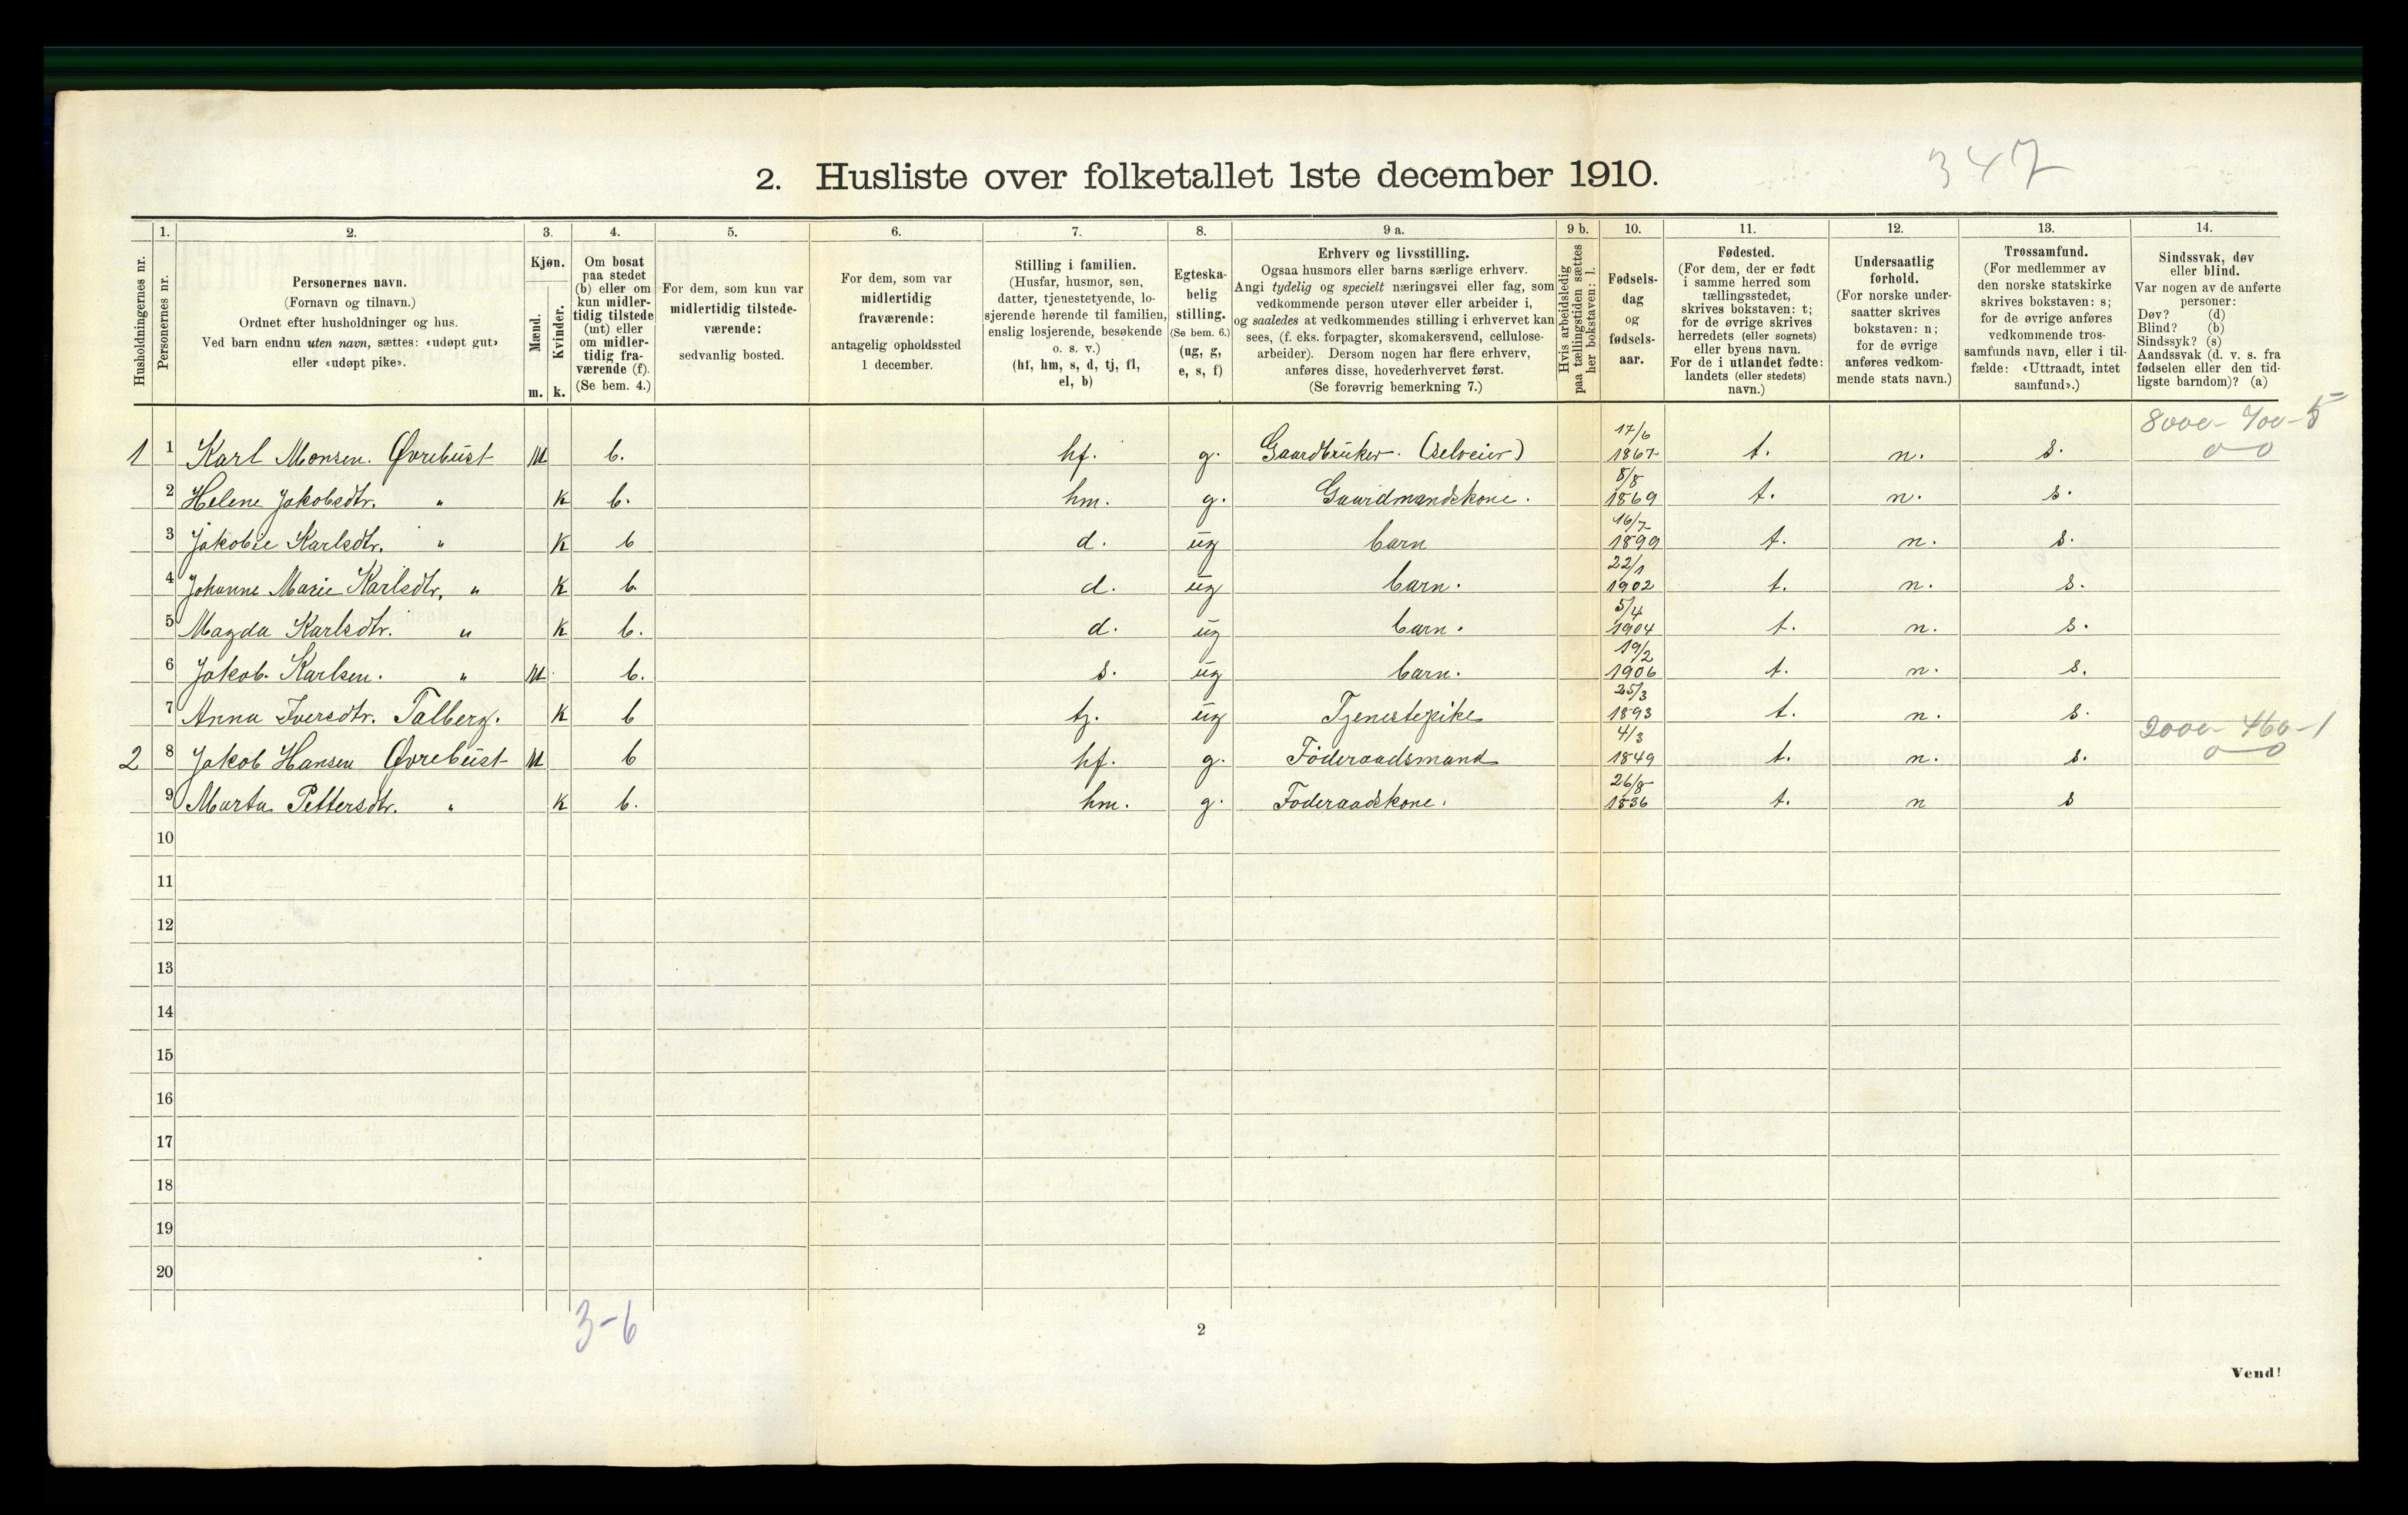 347
2. Husliste over folketallet 1ste december 1910.
Husholdningernes nr.
1.
Personernes nr.
2.
Personernes navn.
(Fornavn og tilnavn.)
Ordnet efter husholdninger og hus.
Ved barn endnu uten navn, sættes: «udøpt gut»
eller «udøpt pike».
3.
Kjøn.
Mænd.
Kvinder.
m. k.
4.
Om bosat
paa stedet
(b) eller om
kun midler-
tidig tilstede
(mt) eller
om midler-
tidig fra-
værende (f).
(Se bem. 4.)
5.
For dem, som kun var
midlertidig tilstede-
værende:
sedvanlig bosted.
6.
For dem, som var
midlertidig
fraværende:
antagelig opholdssted
1 december.
7.
Stilling i familien.
(Husfar, husmor, søn,
datter, tjenestetyende, lo-
sjerende hørende til familien,
enslig losjerende, besøkende
o. s. v.)
(hf, hm, s, d, tj, fl,
el, b)
8.
Egteska-
belig
stilling.
(Se bem. 6.)
(ug, g,
e, s, f)
9 a.
Erhverv og livsstilling.
Ogsaa husmors eller barns særlige erhverv.
Angi tydelig og specielt næringsvei eller fag, som
vedkommende person utøver eller arbeider i,
og saaledes at vedkommendes stilling i erhvervet kan
sees, (f. eks. forpagter, skomakersvend, cellulose-
arbeider). Dersom nogen har flere erhverv,
anføres disse, hovederhvervet først.
(Se forøvrig bemerkning 7.)
9 b.
Hvis arbeidsledig
paa tællingstiden sættes
her bokstaven: l.
10.
Fødsels-
dag
og
fødsels-
aar.
11.
Fødested.
(For dem, der er født
i samme herred som
tællingsstedet,
skrives bokstaven: t;
for de øvrige skrives
herredets (eller sognets)
eller byens navn.
For de i utlandet fødte:
landets (eller stedets)
navn.)
12.
Undersaatlig
forhold.
(For norske under-
saatter skrives
bokstaven: n;
for de øvrige
anføres vedkom-
mende stats navn.)
13.
Trossamfund.
(For medlemmer av
den norske statskirke
skrives bokstaven: s;
for de øvrige anføres
vedkommende tros-
samfunds navn, eller i til-
fælde: «Uttraadt, intet
samfund».)
14.
Sindssvak, døv
eller blind.
Var nogen av de anførte
personer:
Døv? (d)
Blind? (b)
Sindssyk? (s)
Aandssvak (d. v. s. fra
fødselen eller den tid-
ligste barndom)? (a)
8000 - 700 - 5
0 - 0
1 1 Karl Monsen. Øvrebust M b. hf. g. Gaardbruker. (selveier) 17/6 1867 t. n. s.
2 Helene Jakobsdtr. " K b. hm. g. Gaardmandskone. 8/8 1869 t. n. s.
3 Jakobie Karlsdtr. " K b d. ug barn 16/7 1899 t. n. s.
4 Johanne Marie Karlsdtr. " K b. d. ug barn. 22/1 1902 t. n. s.
5 Magda Karlsdtr. " K b. d. ug barn. 5/4 1904 t. n. s.
6 Jakob Karlsen. " M b. s. ug barn. 19/2 1906 t. n. s.
7 Anna Iversdtr. Talberg. K b tj. ug Tjenestepike 25/3 1893 t. n. s.
2000 - 460 - 1
0 - 0
2 8 Jakob Hansen Øvrebust M b hf. g. Föderaadsmand 4/3 1849 t. n. s.
9 Marta Pettersdtr. " K b. hm. g. Foderaadskone. 26/8 1836 t. n s
10
11
12
13
14
15
16
17
18
19
20
3-6
2
Vend!